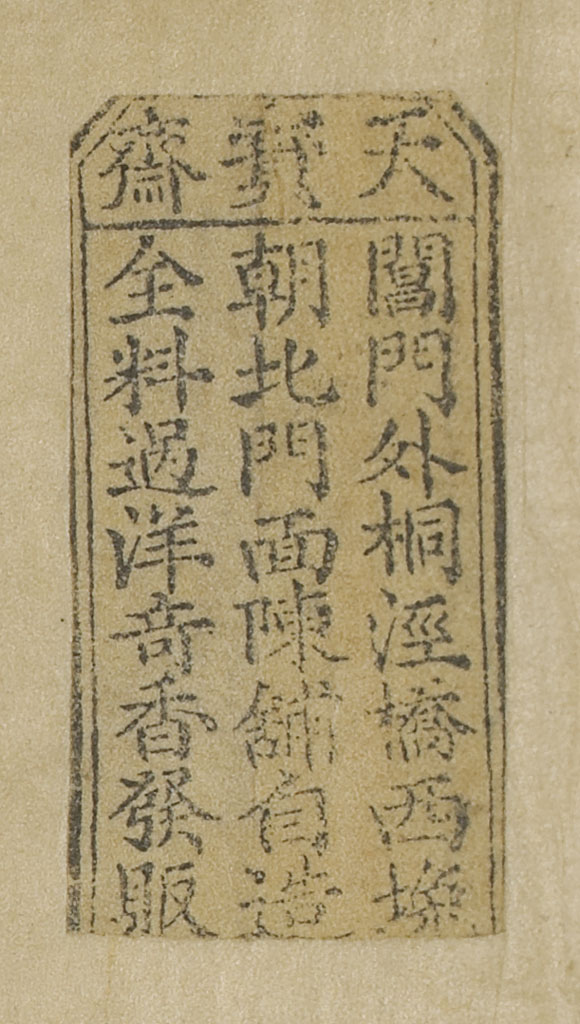 天義齋
閶門外桐涇橋西
朝北門面陳舖自造
全料過洋奇香發販